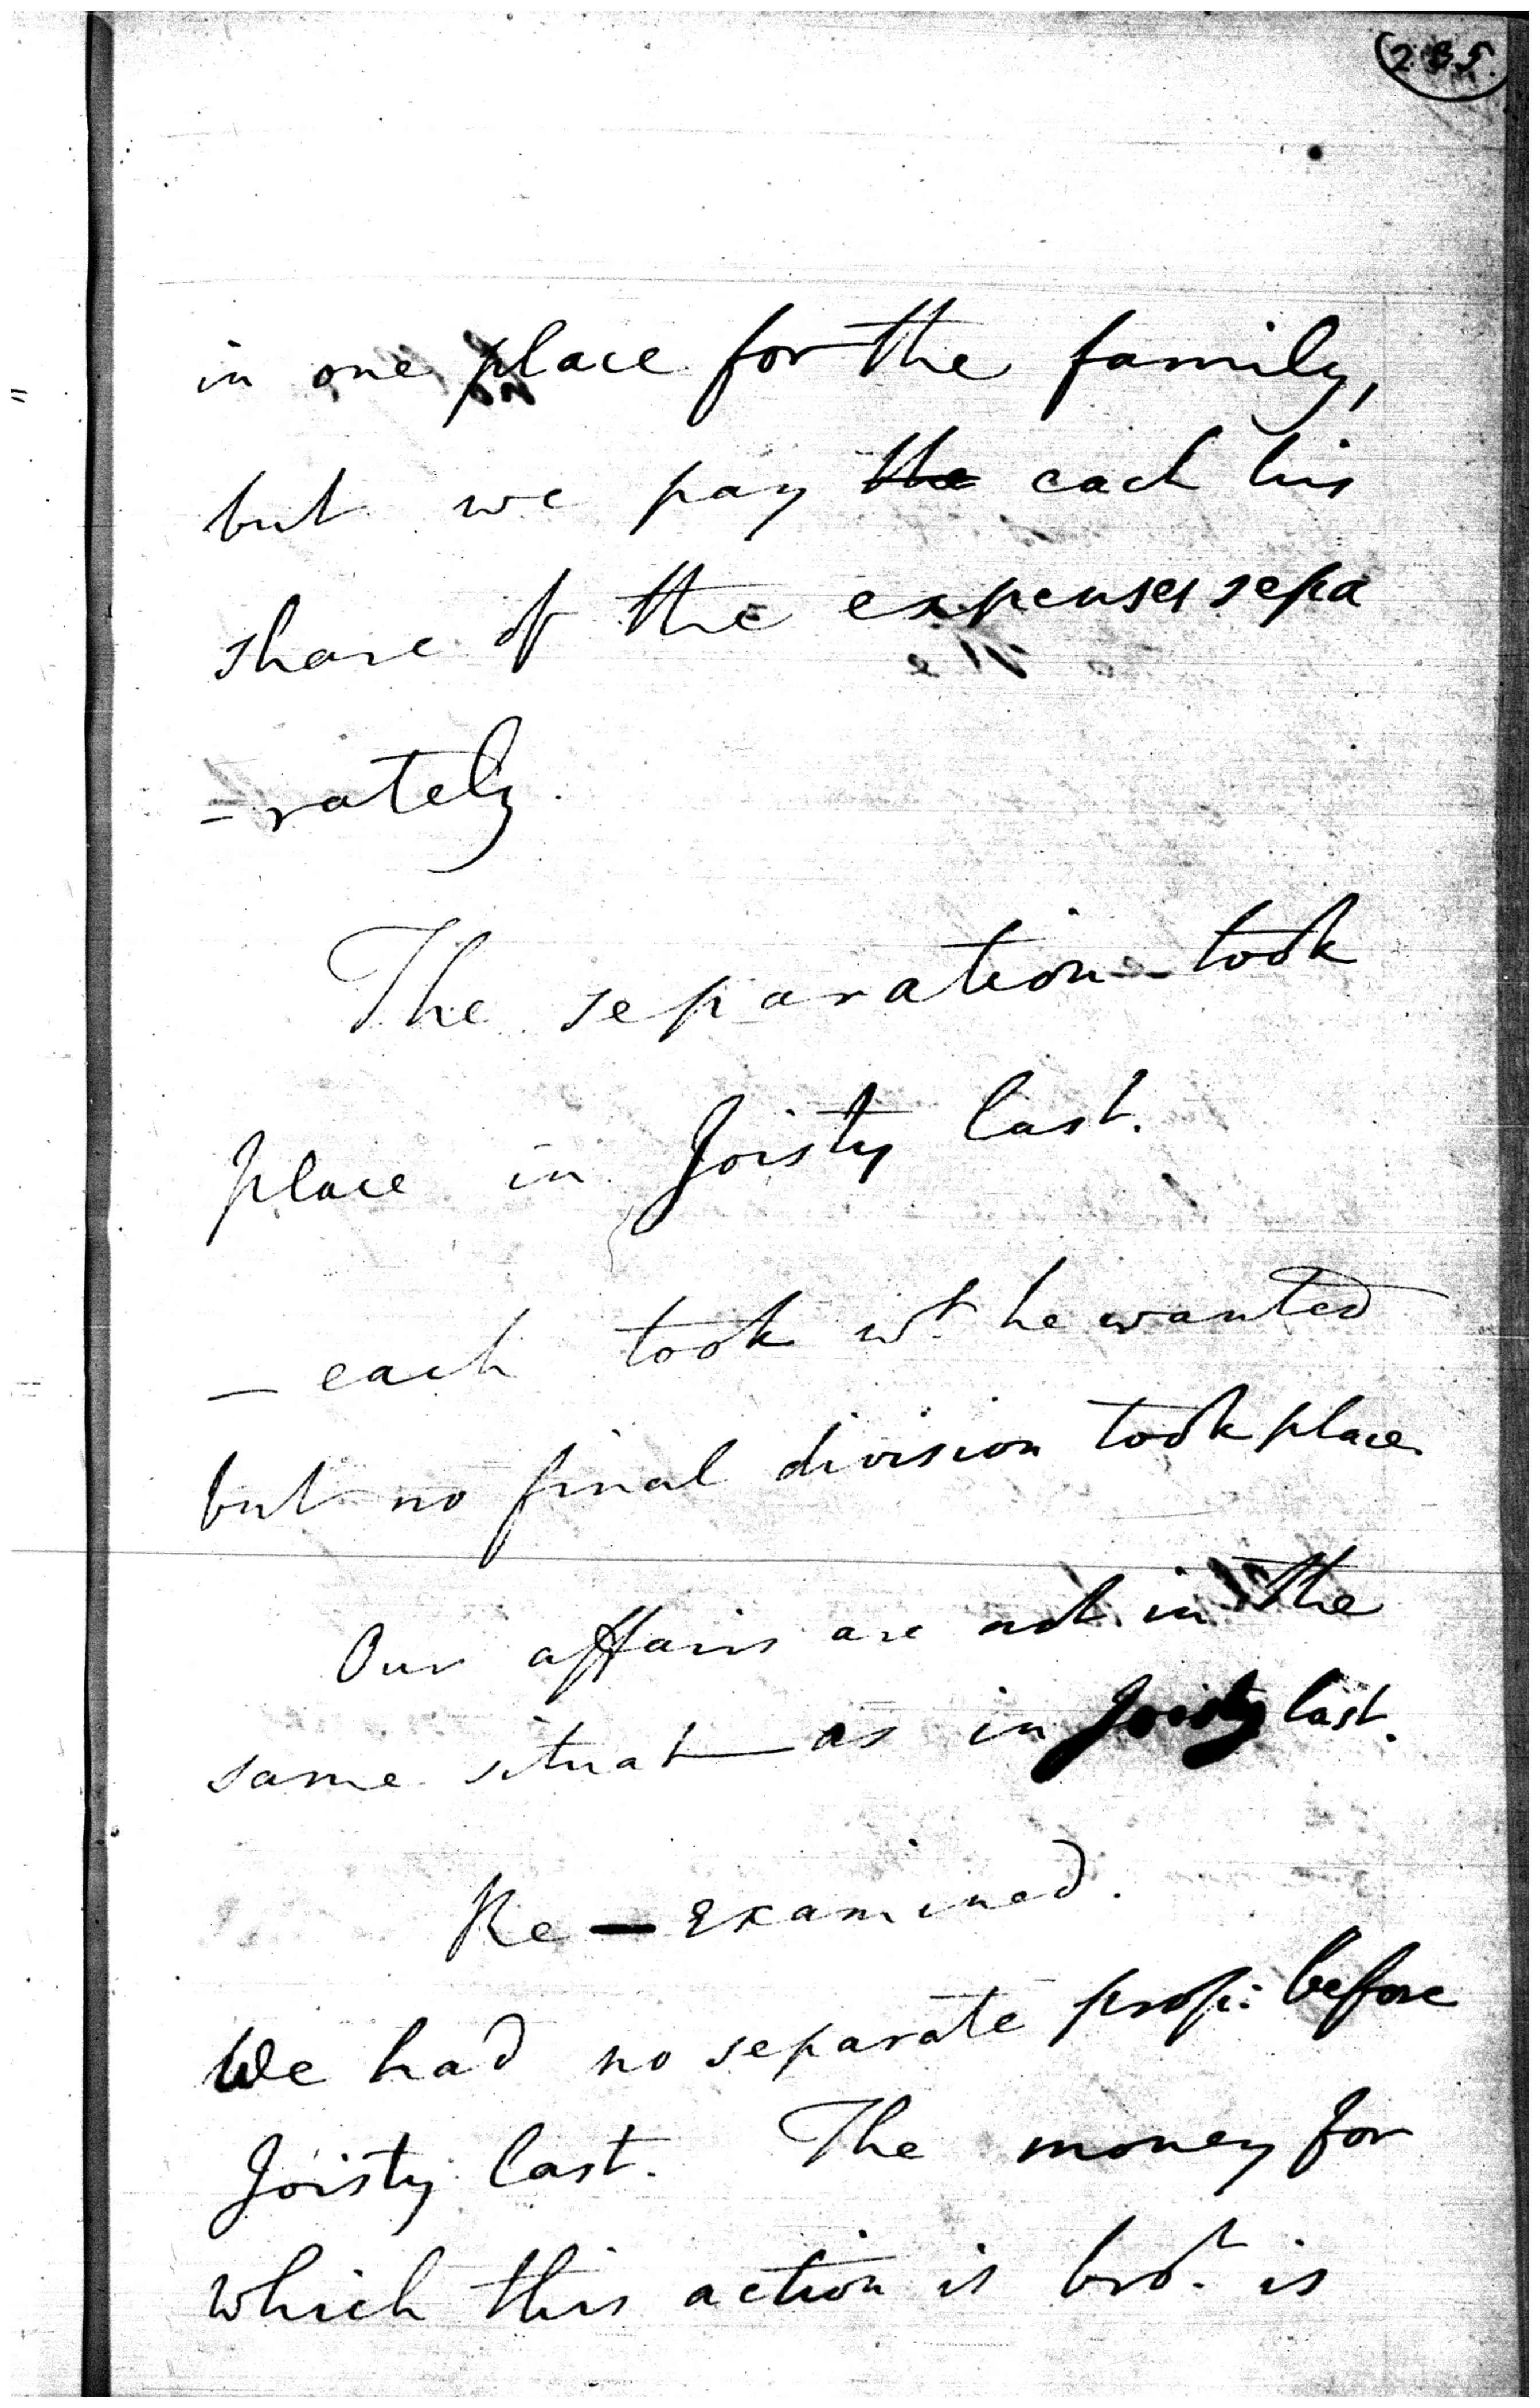 235.
in one place for the family,
but we pay the each his
share of the expenses sepa
-rately.
The separation took
place in Joisty last.
- each took wt he wanted
but no final division took place.
Our affairs are not in the
same situat as in Joisty last.
Re-examined.
We had no separate prop: before
Joisty last. The money for
which this action is brot. is